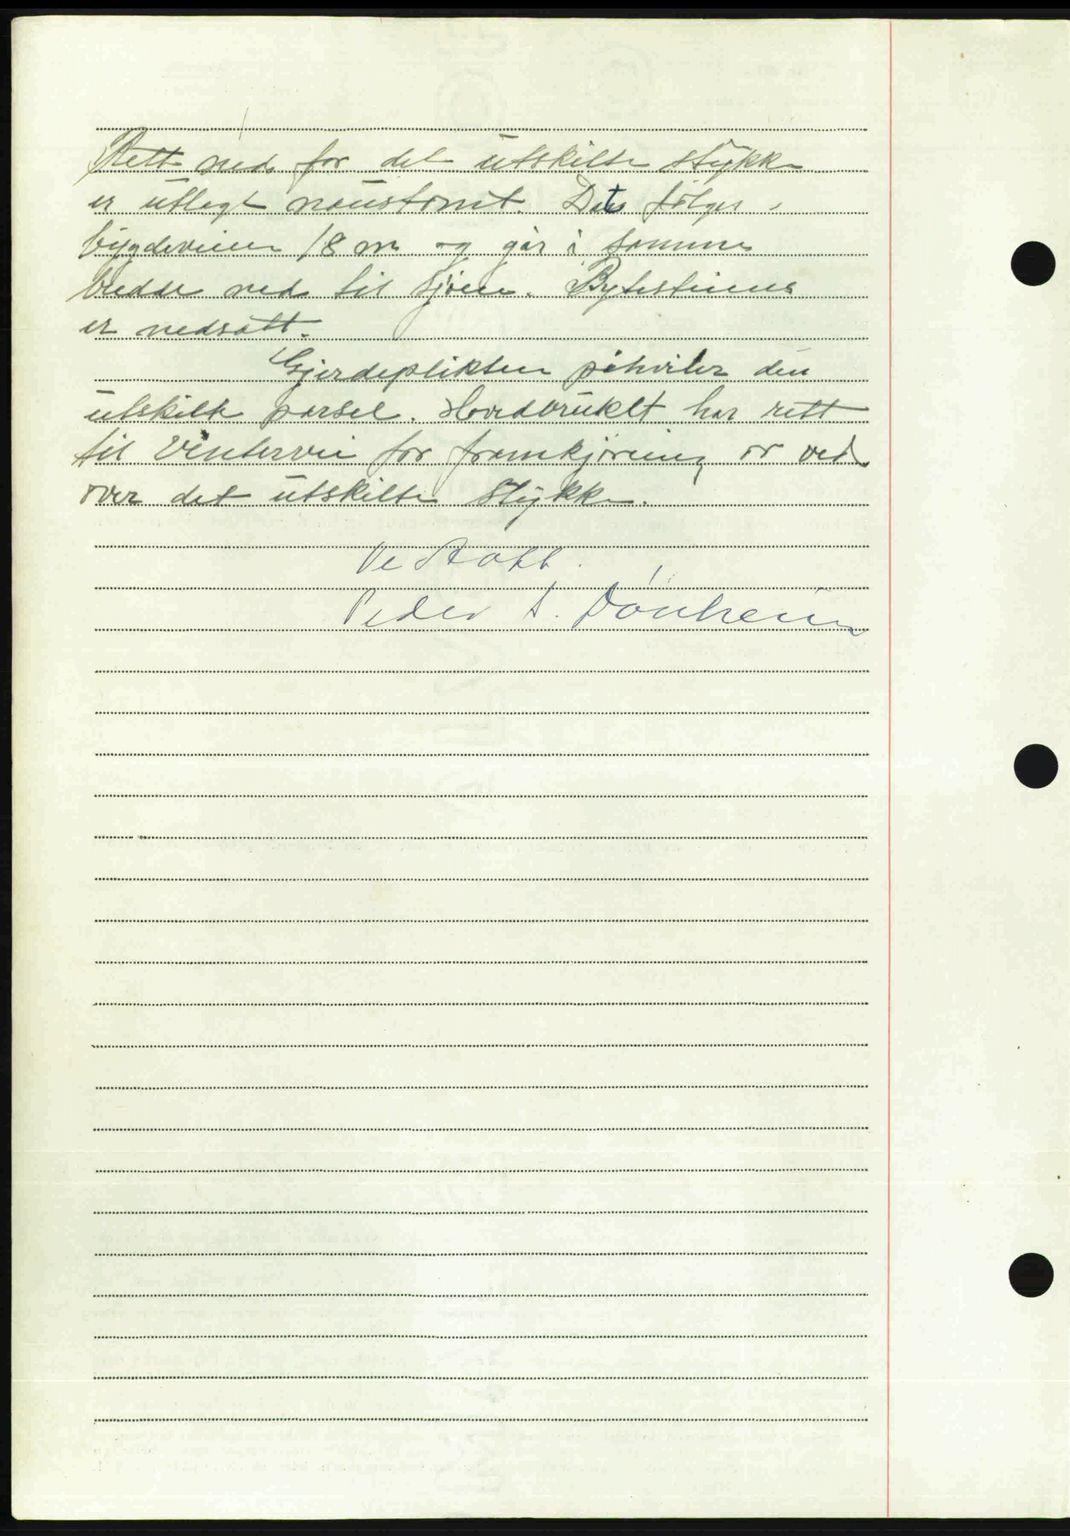 Rett ned for det utskilte stykke
er utlagt nausttomt. Det følger
bygdeveien 18 m og går i samme
bredde ned til sjøen. Bytesteine
er nedsatt.
Gjerdeplikten påhviler den
utskilte parsel. Hovedbruket har rett
til vintervei for framkjøring av ved
over det utskilte stykke.
Peder A. Dønheim